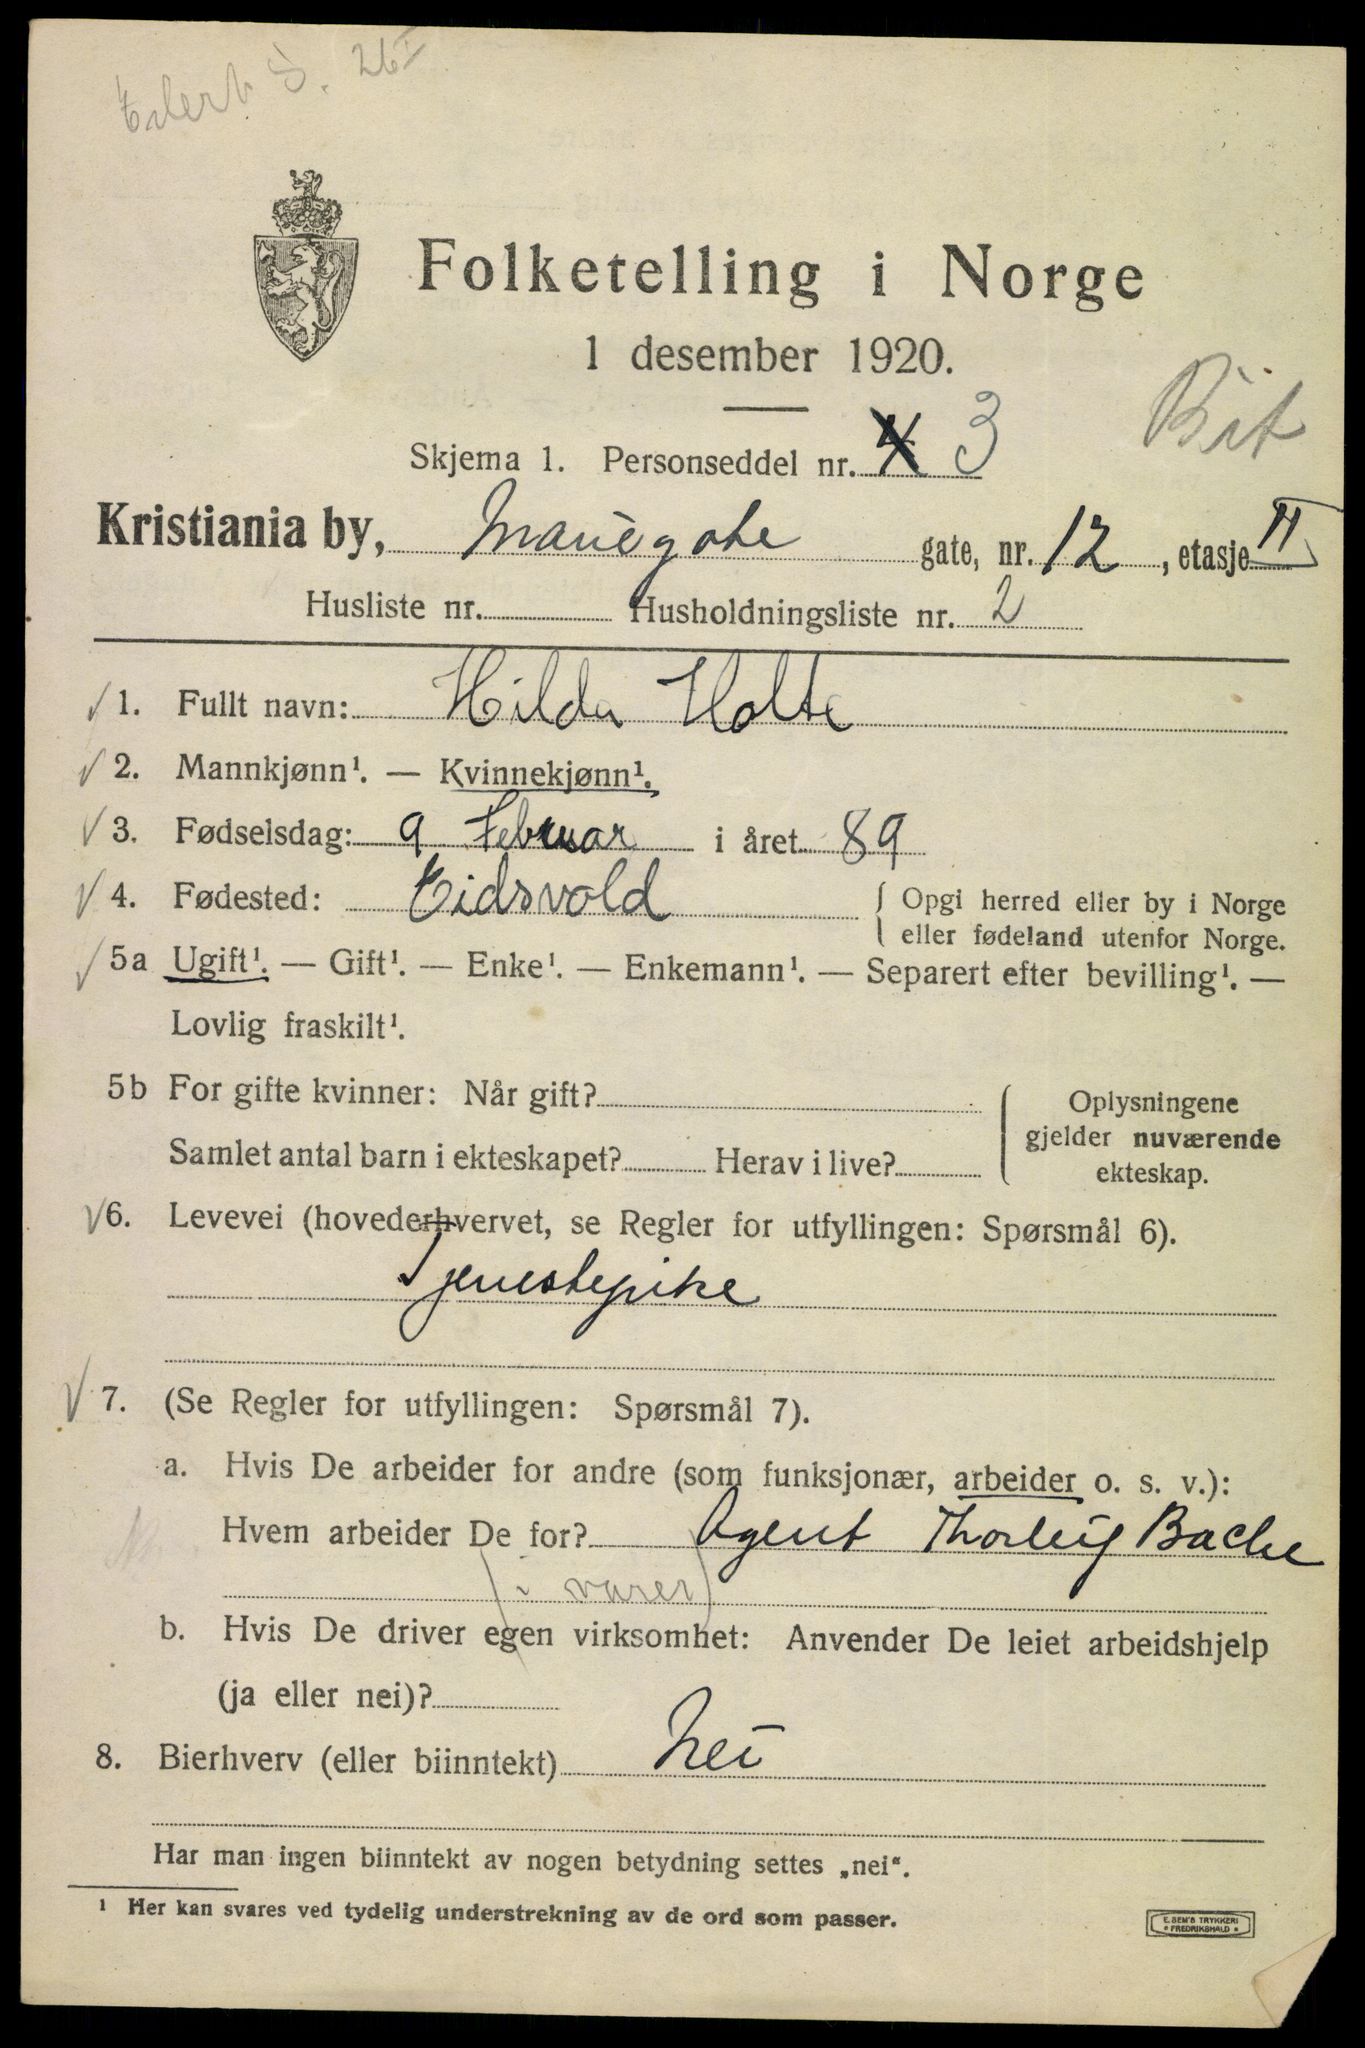 S. 26I
Folketelling i Norge
1 desember 1920.
Skjema 1. Personseddel nr. 4 3
Kristiania by, Mariegate gate, nr. 12, etasje II
Husliste nr. Husholdningsliste nr. 2
√ 1. Fullt navn: Hilda Holte
√ 2. Mannkjønn¹. — Kvinnekjønn¹.
√ 3. Fødselsdag: 9 Februar i året 89
√ 4. Fødested: Eidsvold { Opgi herred eller by i Norge
eller fødeland utenfor Norge.
√ 5a Ugift¹. — Gift¹. — Enke¹. — Enkemann¹. — Separert efter bevilling¹. —
Lovlig fraskilt¹.
5b For gifte kvinner: Når gift?
Samlet antal barn i ekteskapet? Herav i live?
{ Oplysningene
gjelder nuværende
ekteskap.
√ 6. Levevei (hovederhvervet, se Regler for utfyllingen: Spørsmål 6).
Tjenestepike
√ 7. (Se Regler for utfyllingen: Spørsmål 7).
a. Hvis De arbeider for andre (som funksjonær, arbeider o. s. v.):
Hvem arbeider De for? Agent Thorleif Bache
(i varer)
b. Hvis De driver egen virksomhet: Anvender De leiet arbeidshjelp
(ja eller nei)?
8. Bierhverv (eller biinntekt) Nei
Har man ingen biinntekt av nogen betydning settes „nei“.
¹ Her kan svares ved tydelig understrekning av de ord som passer.
E. SEM'S TRYKKERI
* FREDRIKSHALD *